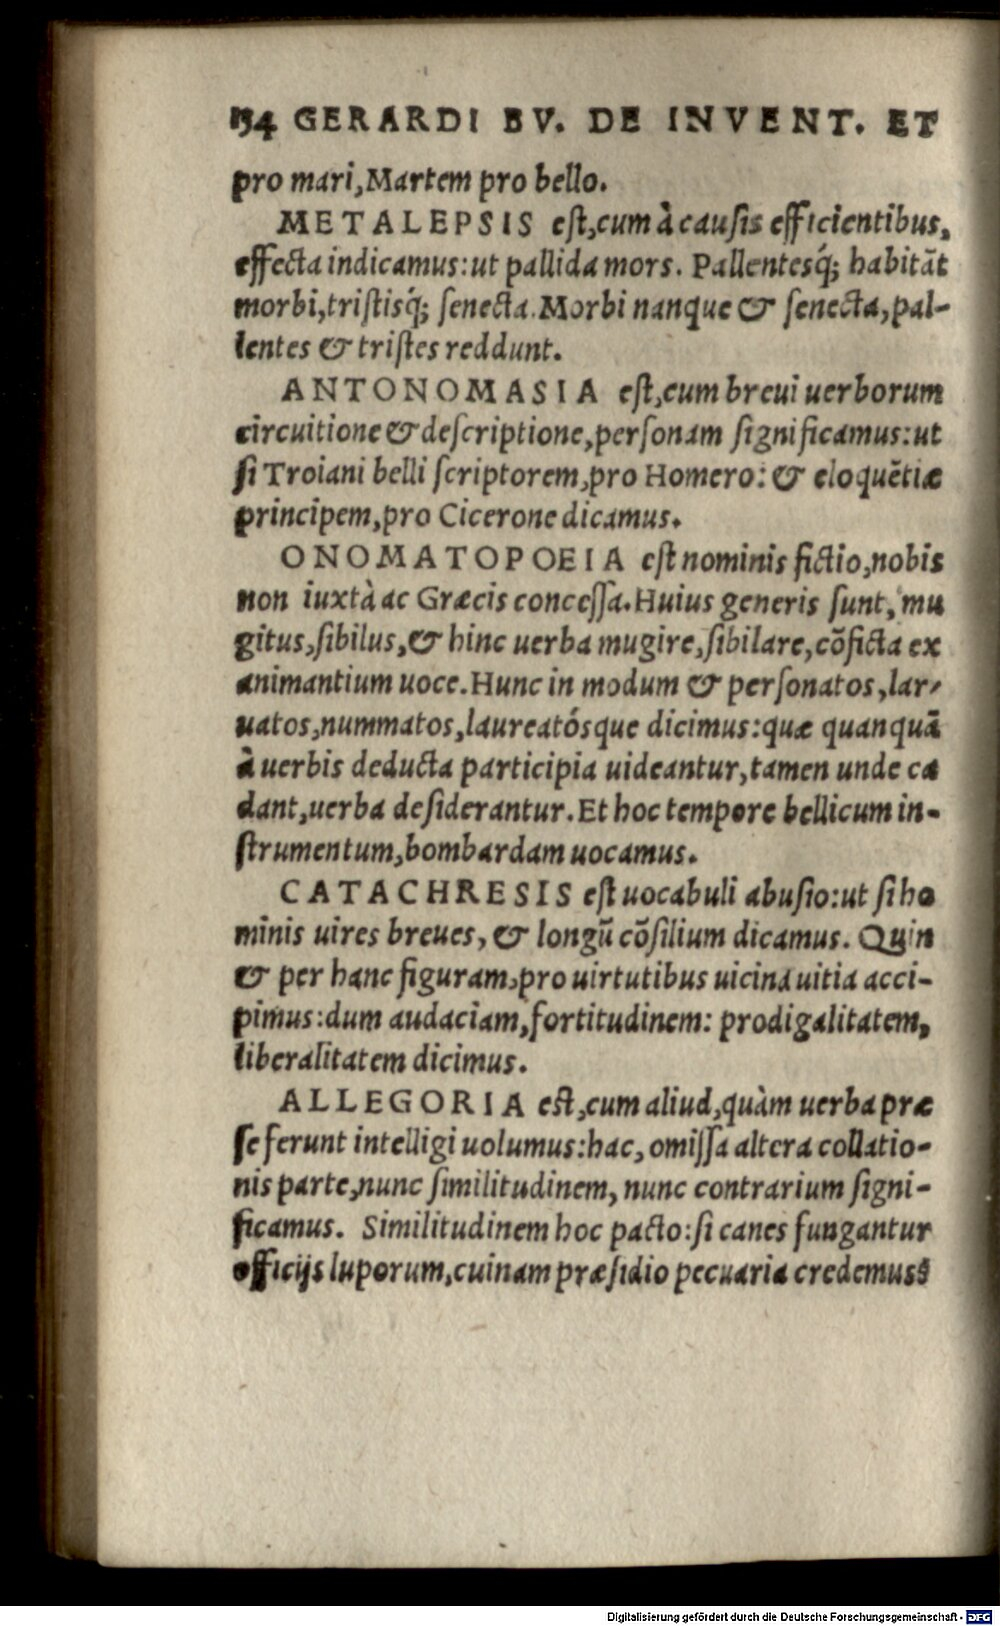 154 GERARDI BV. DE INVENT. ET
pro mari, Martem pro bello.
METALEPSIS eſt, cum à cauſis efficientibus,
effecta indicamus: ut pallida mors. Pallentesq́; habitāt
morbi, triſtisq́; ſenecta. Morbi nanque & ſenecta, pal-
lentes & triſtes reddunt.
ANTONOMASIA eſt, cum breui uerborum
circuitione & deſcriptione, perſonam ſignificamus: ut
ſi Troiani belli ſcriptorem, pro Homero: & eloquētiæ
principem, pro Cicerone dicamus.
ONOMATOPOEIA eſt nominis fictio, nobis
non iuxtà ac Græcis conceſſa. Huius generis ſunt, mu
gitus, ſibilus, & hinc uerba mugire, ſibilare, cōficta ex
animantium uoce. Hunc in modum & perſonatos, lar-
uatos, nummatos, laureatósque dicimus: quæ quanquā
à uerbis deducta participia uideantur, tamen unde ca
dant, uerba deſiderantur. Et hoc tempore bellicum in-
ſtrumentum, bombardam uocamus.
CATACHRESIS eſt uocabuli abuſio: ut ſi ho
minis uires breues, & longū cōſilium dicamus. Quin
& per hanc figuram, pro uirtutibus uicina uitia acci-
pimus: dum audaciam, fortitudinem: prodigalitatem,
liberalitatem dicimus.
ALLEGORIA eſt, cum aliud, quàm uerba præ
ſe ferunt intelligi uolumus: hac, omiſſa altera collatio-
nis parte, nunc ſimilitudinem, nunc contrarium ſigni-
ficamus. Similitudinem hoc pacto: ſi canes fungantur
officijs luporum, cuinam præſidio pecuaria credemus?
Digitalisierung gefördert durch die Deutsche Forschungsgemeinschaft - DFG